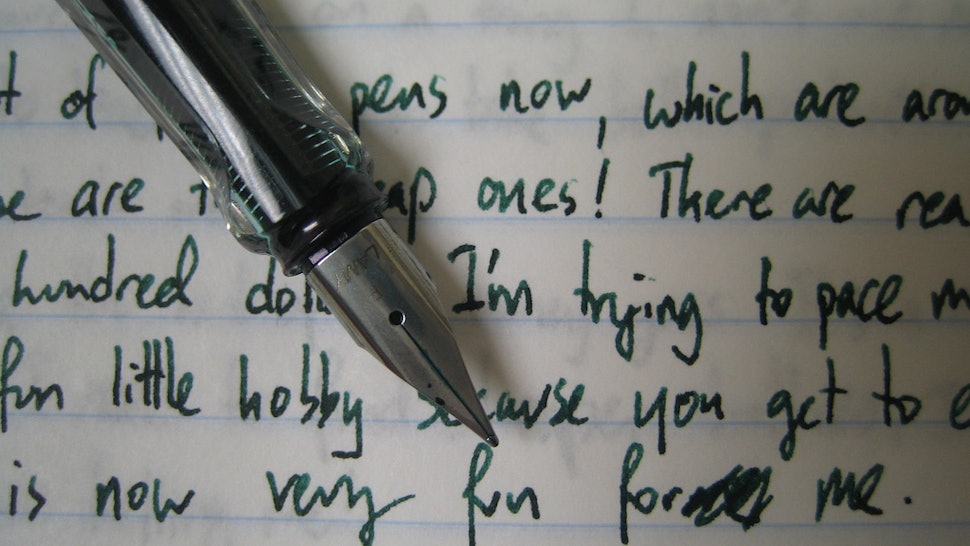 of pens now, which are
are ones! There are
hundred I'm trying to pace
fun little hobby because you get to
is now very fun for me.